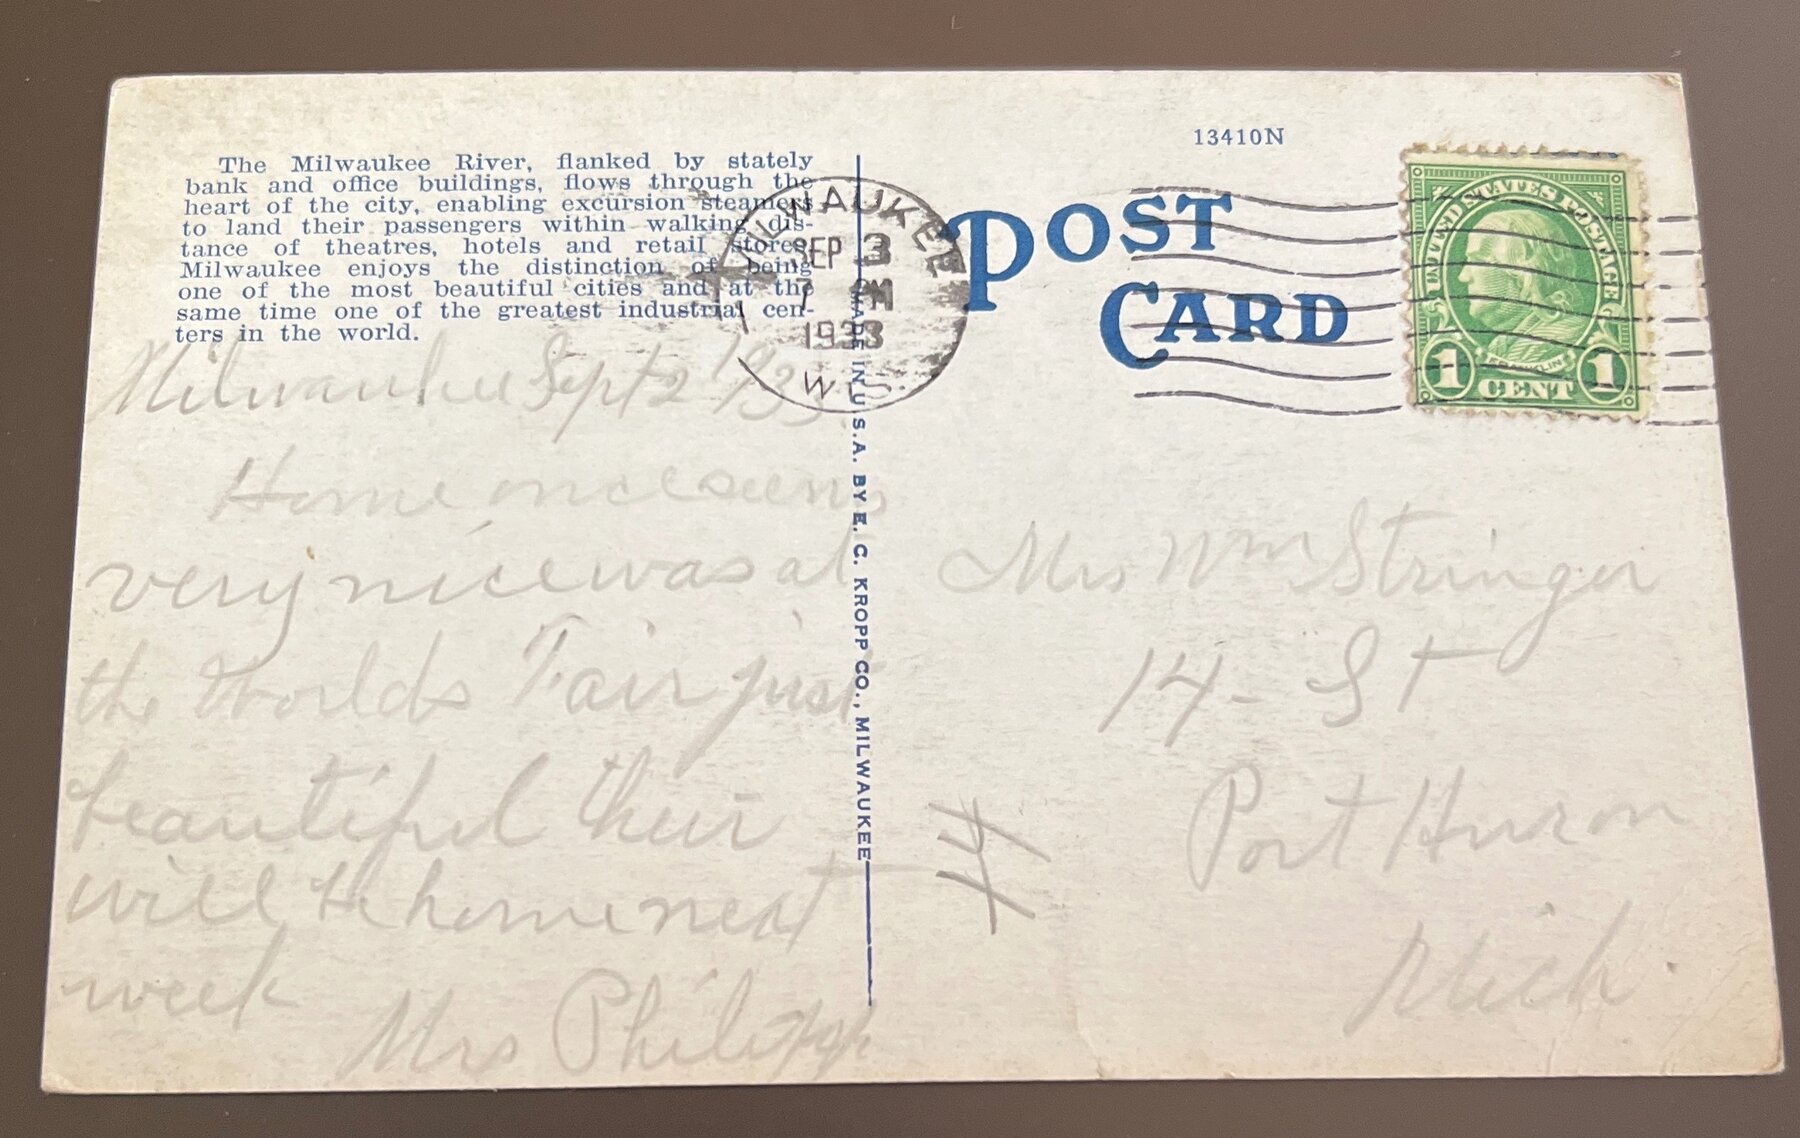 The Milwaukee River, flanked by stately
bank and office buildings, flows through the
heart of the city, enabling excursion steamers
to land their passengers within walking dis-
tance of theatres, hotels and retail stores.
Milwaukee enjoys the distinction of being
one of the most beautiful cities and at the
same time one of the greatest industrial cen-
ters in the world.
Milwaukee Sept 2 1933
Home
very nice was at
the Worlds Fair just
beautiful their
will be home next
week
Mrs Philipp
MADE IN U.S.A. BY E. C. KROPP CO., MILWAUKEE
MILWAUKEE
SEP 3
7 M
1933
WIS.
13410N
POST
CARD
UNITED STATES POSTAGE
FRANKLIN
1 CENT 1
Mrs Wm Stringer
14 - St
Port Huron
Mich.